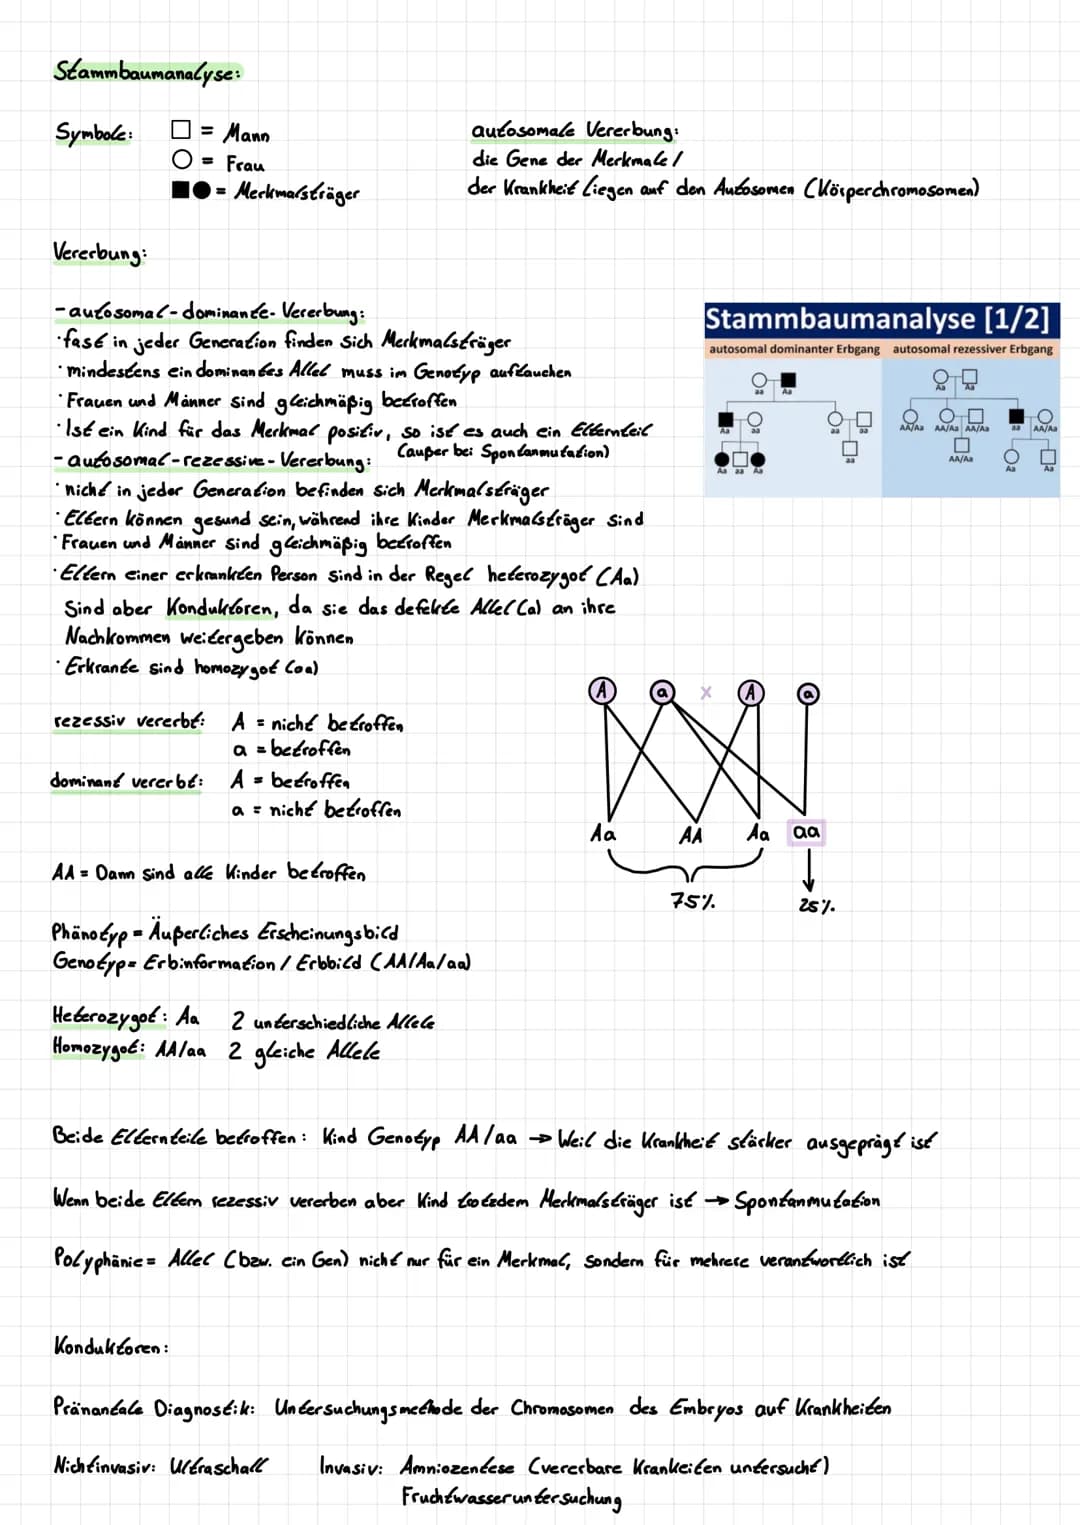 Stammbaumanalyse:
Symbole: □ = Mann
○ = Frau
■● = Merkmalsträger
autosomale Vererbung:
die Gene der Merkmale /
der Krankheit liegen auf den Autosomen (Körperchromosomen)
Vererbung:
- autosomal-dominante-Vererbung:
·fast in jeder Generation finden sich Merkmalsträger
·mindestens ein dominantes Allel muss im Genotyp auftauchen
·Frauen und Männer sind gleichmäßig betroffen
·Ist ein Kind für das Merkmal positiv, so ist es auch ein Elternteil
(außer bei Spontanmutation)
- autosomal-rezessive-Vererbung:
·nicht in jeder Generation befinden sich Merkmalsträger
·Eltern können gesund sein, während ihre Kinder Merkmalsträger sind
·Frauen und Männer sind gleichmäßig betroffen
·Eltern einer erkrankten Person sind in der Regel heterozygot (Aa)
Sind aber Konduktoren, da sie das defekte Allel (a) an ihre
Nachkommen weitergeben können
·Erkrante sind homozygot (aa)
Stammbaumanalyse [1/2]
autosomal dominanter Erbgang autosomal rezessiver Erbgang
aa Aa
Aa aa aa aa
aa
Aa aa Aa
Aa Aa
AA/Aa AA/Aa AA/Aa aa AA/Aa
AA/Aa
Aa Aa
rezessiv vererbt: A = nicht betroffen
a = betroffen
dominant vererbt: A = betroffen
a = nicht betroffen
A a x A a
Aa AA Aa aa
75% 25%
AA = Dann sind alle Kinder betroffen
Phänotyp = Äußerliches Erscheinungsbild
Genotyp= Erbinformation / Erbbild (AA/Aa/aa)
Heterozygot: Aa 2 unterschiedliche Allele
Homozygot: AA/aa 2 gleiche Allele
Beide Elternteile betroffen: Kind Genotyp AA/aa → Weil die Krankheit stärker ausgeprägt ist
Wenn beide Eltern rezessiv vererben aber Kind trotzdem Merkmalsträger ist → Spontanmutation
Polyphänie= Allel (bzw. ein Gen) nicht nur für ein Merkmal, sondern für mehrere verantwortlich ist
Konduktoren:
Pränantale Diagnostik: Untersuchungsmethode der Chromosomen des Embryos auf Krankheiten
Nichtinvasiv: Ultraschall Invasiv: Amniozentese (vererbare Krankeiten untersucht)
Fruchtwasseruntersuchung